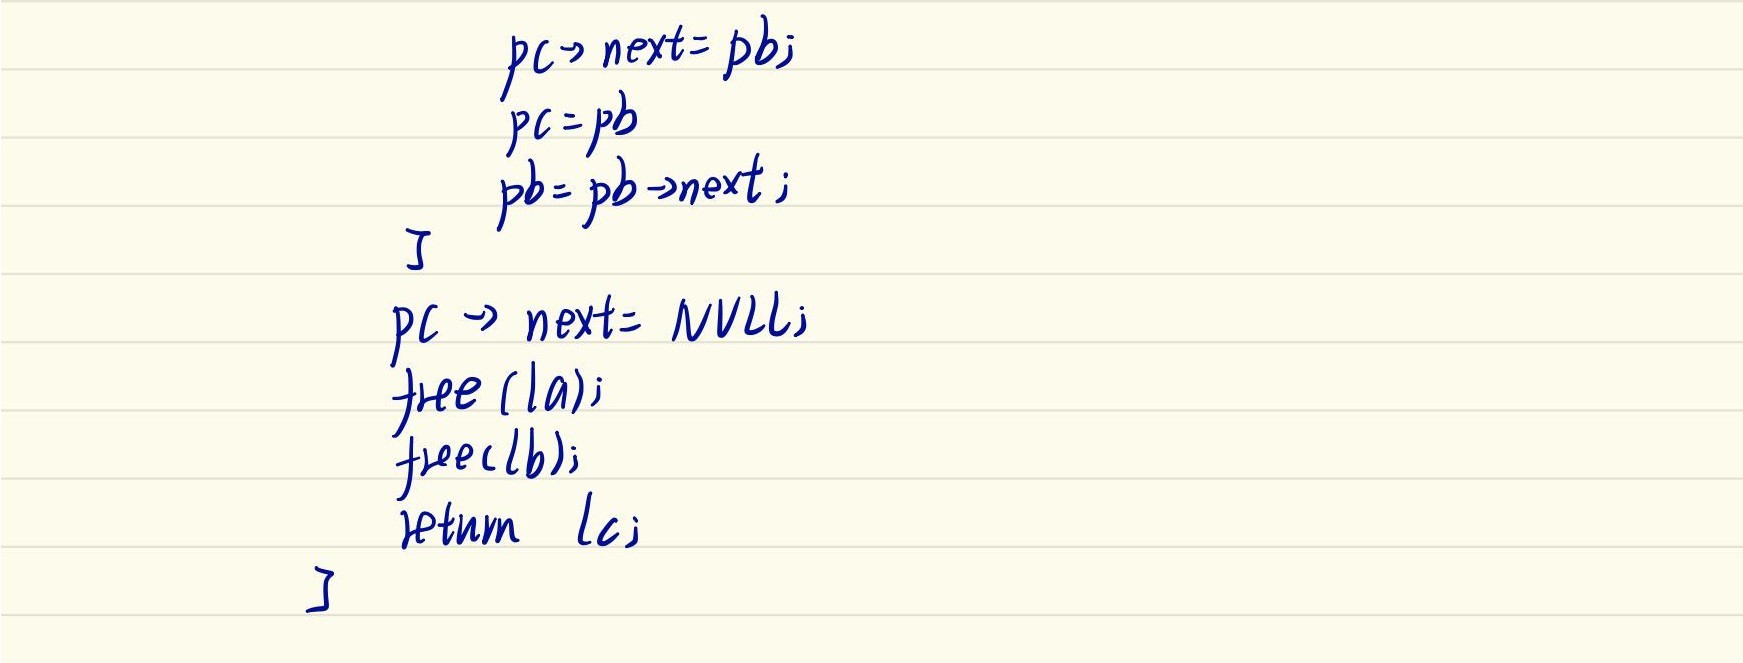 pc→next=pb;
pc=pb
pb=pb→next;
}
pc→next=NULL;
free(la);
free(lb);
return lc;
}